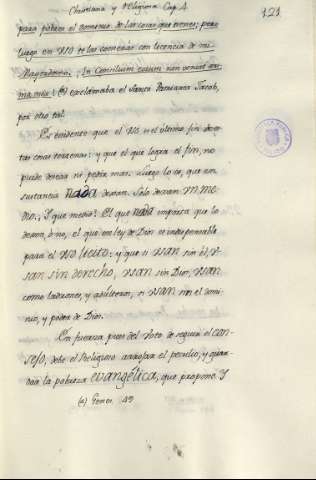 Christiana y Religiosa Cap. 4.
121
para poseer el dominio de las cosas que tienes; pero
luego en uso te las concedan con licencia de mi
Magestad. In Concilium eorum non veniat a-
nima mea: (a) exclamaba el Santo Patriarca Jacob,
por otro tal.
Es evidente que el uso es el ultimo fin de es-
tas cosas terrenas: y que el que logra el fin, no
puede desear ni pedir mas. Luego lo es, que en
sustancia nada dexan. Solo dexan un me-
dio. ¿Y que medio? El que nada importa que lo
dexen, ô no, el que en ley de Dios es indispensable
para el uso licito: y que si usan sin èl, u-
san sin derecho, usan sin Dios, usan
como ladrones, y adulteros, si usan sin el domi-
nio, y poder de Dios.
En fuerza pues del Voto de seguir el con-
sejo, debe el Religioso arrojar el peculio, y guar-
dar la pobreza evangélica, que propone. Y
(a) Genes. 49